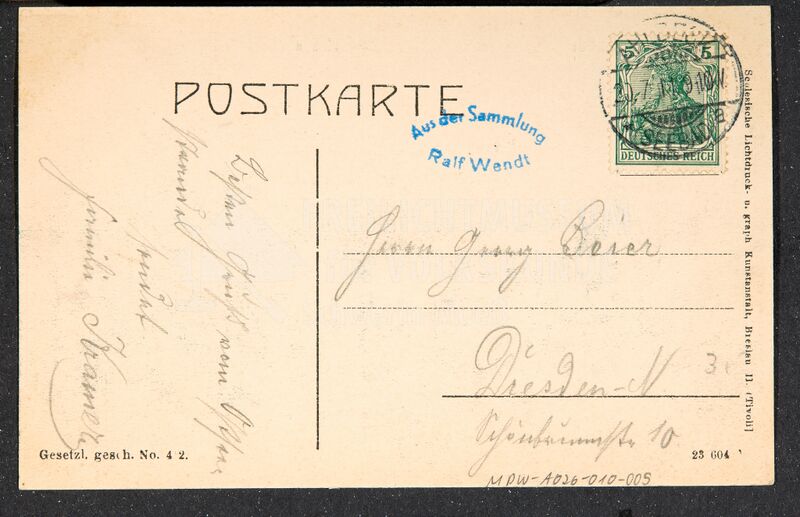 POSTKARTE
Aus der Sammlung
Ralf Wendt
5 5
DEUTSCHES REICH
Besten Gruß vom
sendet
Familie Kramer
Herrn Georg Beier
Dresden-N
3.
Schönbrunnstr 10
Gesetzl. gesch. No. 4 2.
23 604
MPW-A026-010-005
Schlesische Lichtdruck- u. graph Kunstanstalt, Breslau II. (Tivoli)